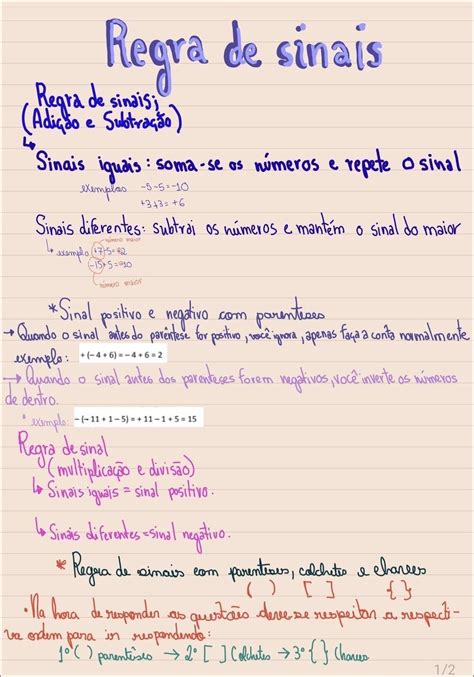 Regra de sinais
Regra de sinais;
(Adição e Subtração)
Sinais iguais: soma-se os números e repete o sinal
exemplos -5-5=-10
+3+3=+6
Sinais diferentes: subtrai os números e mantém o sinal do maior
número maior
exemplo +7-5=+2
-15+5=-10
número maior
*Sinal positivo e negativo com parênteses
→ Quando o sinal antes do parêntese for positivo, você ignora, apenas faça a conta normalmente
exemplo: + (– 4 + 6) = – 4 + 6 = 2
→ Quando o sinal antes dos parenteses forem negativos, você inverte os números
de dentro.
• exemplo: – (– 11 + 1 – 5) = + 11 – 1 + 5 = 15
Regra de sinal
(multiplicação e divisão)
↳ Sinais iguais = sinal positivo.
↳ Sinais diferentes = sinal negativo.
* Regra de sinais com parenteses, colchetes e chaves
( ) [ ] { }
• Na hora de responder as questões deve se respeitar a respecti-
va ordem para ir respondendo:
1º ( ) parentêses → 2º [ ] Colchetes → 3º { } Chaves
1/2